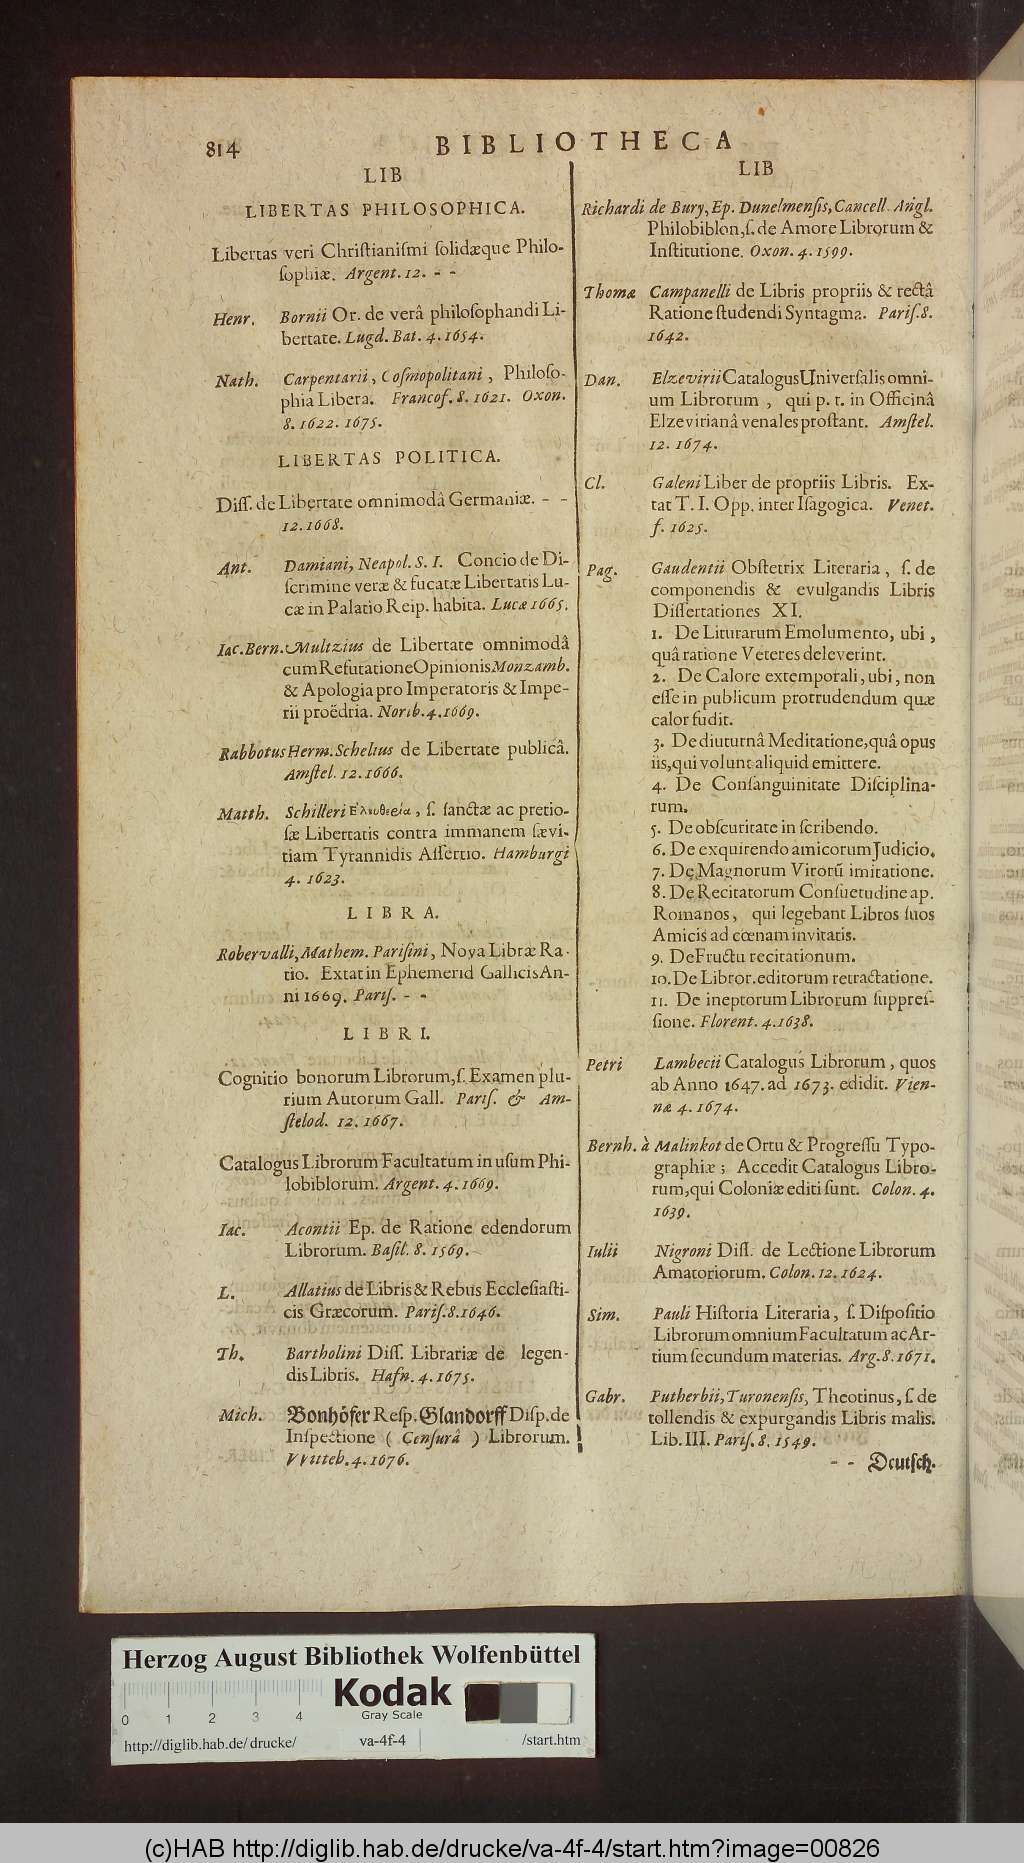 814
BIBLIOTHECA
LIB
LIBERTAS PHILOSOPHICA.
Libertas veri Chriſtianiſmi ſolidæque Philo-
ſophiæ. Argent. 12. - -
Henr. Bornii Or. de verâ philoſophandi Li-
bertate. Lugd. Bat. 4. 1654.
Nath. Carpentarii, Coſmopolitani, Philoſo-
phia Libera. Francof. 8. 1621. Oxon.
8. 1622. 1675.
LIBERTAS POLITICA.
Diſſ. de Libertate omnimodâ Germaniæ. - -
12. 1668.
Ant. Damiani, Neapol. S. I. Concio de Di-
ſcrimine veræ & fucatæ Libertatis Lu-
cæ in Palatio Reip. habita. Lucæ 1665.
Iac. Bern. Multzius de Libertate omnimodâ
cum Refutatione Opinionis Monzamb.
& Apologia pro Imperatoris & Impe-
rii proëdria. Norib. 4. 1669.
Rabbotus Herm. Schelius de Libertate publicâ.
Amſtel. 12. 1666.
Matth. Schilleri Ελευθερία, ſ. ſanctæ ac pretio-
ſæ Libertatis contra immanem ſævi-
tiam Tyrannidis Aſſertio. Hamburgi
4. 1623.
LIBRA.
Robervalli, Mathem. Pariſini, Nova Libræ Ra-
tio. Extat in Ephemerid Gallicis An-
ni 1669. Pariſ. - -
LIBRI.
Cognitio bonorum Librorum, ſ. Examen plu-
rium Autorum Gall. Pariſ. & Am-
ſtelod. 12. 1667.
Catalogus Librorum Facultatum in uſum Phi-
lobiblorum. Argent. 4. 1669.
Iac. Acontii Ep. de Ratione edendorum
Librorum. Baſil. 8. 1569.
L. Allatius de Libris & Rebus Eccleſiaſti-
cis Græcorum. Pariſ. 8. 1646.
Th. Bartholini Diſſ. Librariæ de legen-
dis Libris. Hafn. 4. 1675.
Mich. Bonhöfer Reſp. Glandorff Diſp. de
Inſpectione ( Cenſurâ ) Librorum.
VVitteb. 4. 1676.
LIB
Richardi de Bury, Ep. Dunelmenſis, Cancell. Angl.
Philobiblon, ſ. de Amore Librorum &
Inſtitutione. Oxon. 4. 1599.
Thomæ Campanelli de Libris propriis & rectâ
Ratione ſtudendi Syntagma. Pariſ. 8.
1642.
Dan. Elzevirii Catalogus Univerſalis omni-
um Librorum, qui p. t. in Officinâ
Elzevirianâ venales proſtant. Amſtel.
12. 1674.
Cl. Galeni Liber de propriis Libris. Ex-
tat T. I. Opp. inter Iſagogica. Venet.
f. 1625.
Pag. Gaudentii Obſtetrix Literaria, ſ. de
componendis & evulgandis Libris
Diſſertationes XI.
1. De Liturarum Emolumento, ubi,
quâ ratione Veteres deleverint.
2. De Calore extemporali, ubi, non
eſſe in publicum protrudendum quæ
calor fudit.
3. De diuturnâ Meditatione, quâ opus
iis, qui volunt aliquid emittere.
4. De Conſanguinitate Diſciplina-
rum.
5. De obſcuritate in ſcribendo.
6. De exquirendo amicorum Judicio.
7. De Magnorum Virorū imitatione.
8. De Recitatorum Conſuetudine ap.
Romanos, qui legebant Libros ſuos
Amicis ad cœnam invitatis.
9. De Fructu recitationum.
10. De Libror. editorum retractatione.
11. De ineptorum Librorum ſuppreſ-
ſione. Florent. 4. 1638.
Petri Lambecii Catalogus Librorum, quos
ab Anno 1647. ad 1673. edidit. Vien-
næ 4. 1674.
Bernh. à Malinkot de Ortu & Progreſſu Typo-
graphiæ; Accedit Catalogus Libro-
rum, qui Coloniæ editi ſunt. Colon. 4.
1639.
Iulii Nigroni Diſſ. de Lectione Librorum
Amatoriorum. Colon. 12. 1624.
Sim. Pauli Hiſtoria Literaria, ſ. Diſpoſitio
Librorum omnium Facultatum ac Ar-
tium ſecundum materias. Arg. 8. 1671.
Gabr. Putherbii, Turonenſis, Theotinus, ſ. de
tollendis & expurgandis Libris malis.
Lib. III. Pariſ. 8. 1549.
- - Deutſch.
Herzog August Bibliothek Wolfenbüttel
Kodak
Gray Scale
0 1 2 3 4
http://diglib.hab.de/drucke/ va-4f-4 /start.htm
(c)HAB http://diglib.hab.de/drucke/va-4f-4/start.htm?image=00826